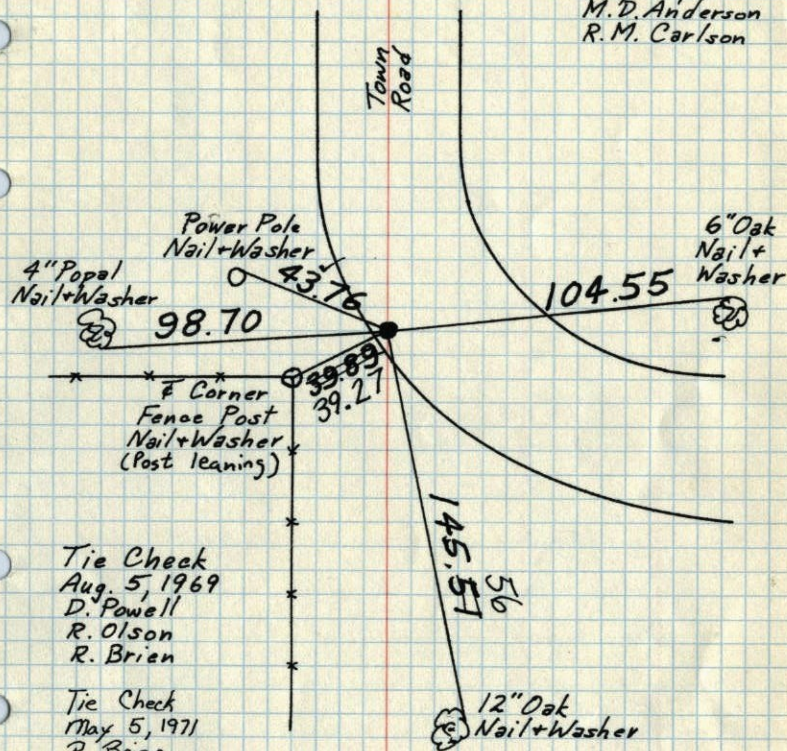 M.D. Anderson
R.M. Carlson
Town
Road
Power Pole
Nail+Washer
43.76
4" Popal
Nail+Washer
98.70
6" Oak
Nail+
Washer
104.55
Corner
Fence Post
Nail+Washer
(Post leaning)
39.89
39.27
145.51
56
Tie Check
Aug. 5, 1969
D. Powell
R. Olson
R. Brien
Tie Check
May 5, 1971
12" Oak
Nail+Washer